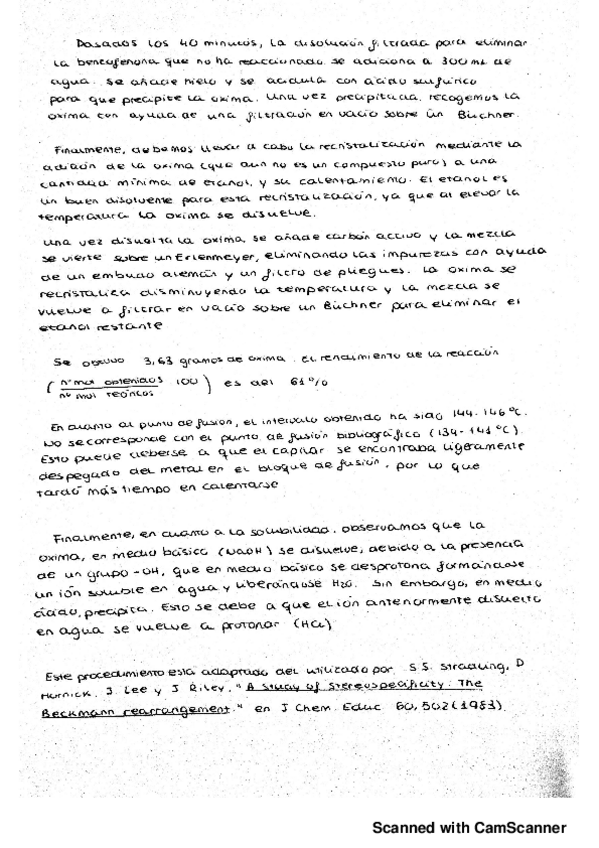 Pasados los 40 minutos, la disolución filtrada para eliminar
la benzofenona que no ha reaccionado se adiciona a 300 mL de
agua. Se añade hielo y se acidula con ácido sulfúrico
para que precipite la oxima. Una vez precipitada, recogemos la
oxima con ayuda de una filtración en vacío sobre un Büchner.
Finalmente, debemos llevar a cabo la recristalización mediante la
adición de la oxima (que aun no es un compuesto puro) a una
cantidad mínima de etanol, y su calentamiento. El etanol es
un buen disolvente para esta recristalización, ya que al elevar la
temperatura la oxima se disuelve.
Una vez disuelta la oxima, se añade carbón activo y la mezcla
se vierte sobre un Erlenmeyer, eliminando las impurezas con ayuda
de un embudo alemán y un filtro de pliegues. La oxima se
recristaliza disminuyendo la temperatura y la mezcla se
vuelve a filtrar en vacío sobre un Büchner para eliminar el
etanol restante
Se obtuvo 3,63 gramos de oxima. El rendimiento de la reacción
(nº mol obtenidos / nº mol teóricos · 100) es del 61%
En cuanto al punto de fusión, el intervalo obtenido ha sido 144-146 ºC.
No se corresponde con el punto de fusión bibliográfico (134-141 ºC).
Esto puede deberse a que el capilar se encontraba ligeramente
despegado del metal en el bloque de fusión, por lo que
tardó más tiempo en calentarse
Finalmente, en cuanto a la solubilidad, observamos que la
oxima, en medio básico (NaOH) se disuelve, debido a la presencia
de un grupo -OH, que en medio básico se desprotona formándose
un ión soluble en agua y liberándose H2O. Sin embargo, en medio
ácido, precipita. Esto se debe a que el ión anteriormente disuelto
en agua se vuelve a protonar (HCl)
Este procedimiento está adaptado del utilizado por S.S. Stradling, D
Hornick, J. Lee y J Riley, "A study of stereospecificity: The
Beckmann rearrangement." en J Chem. Educ 60, 502 (1983).
Scanned with CamScanner